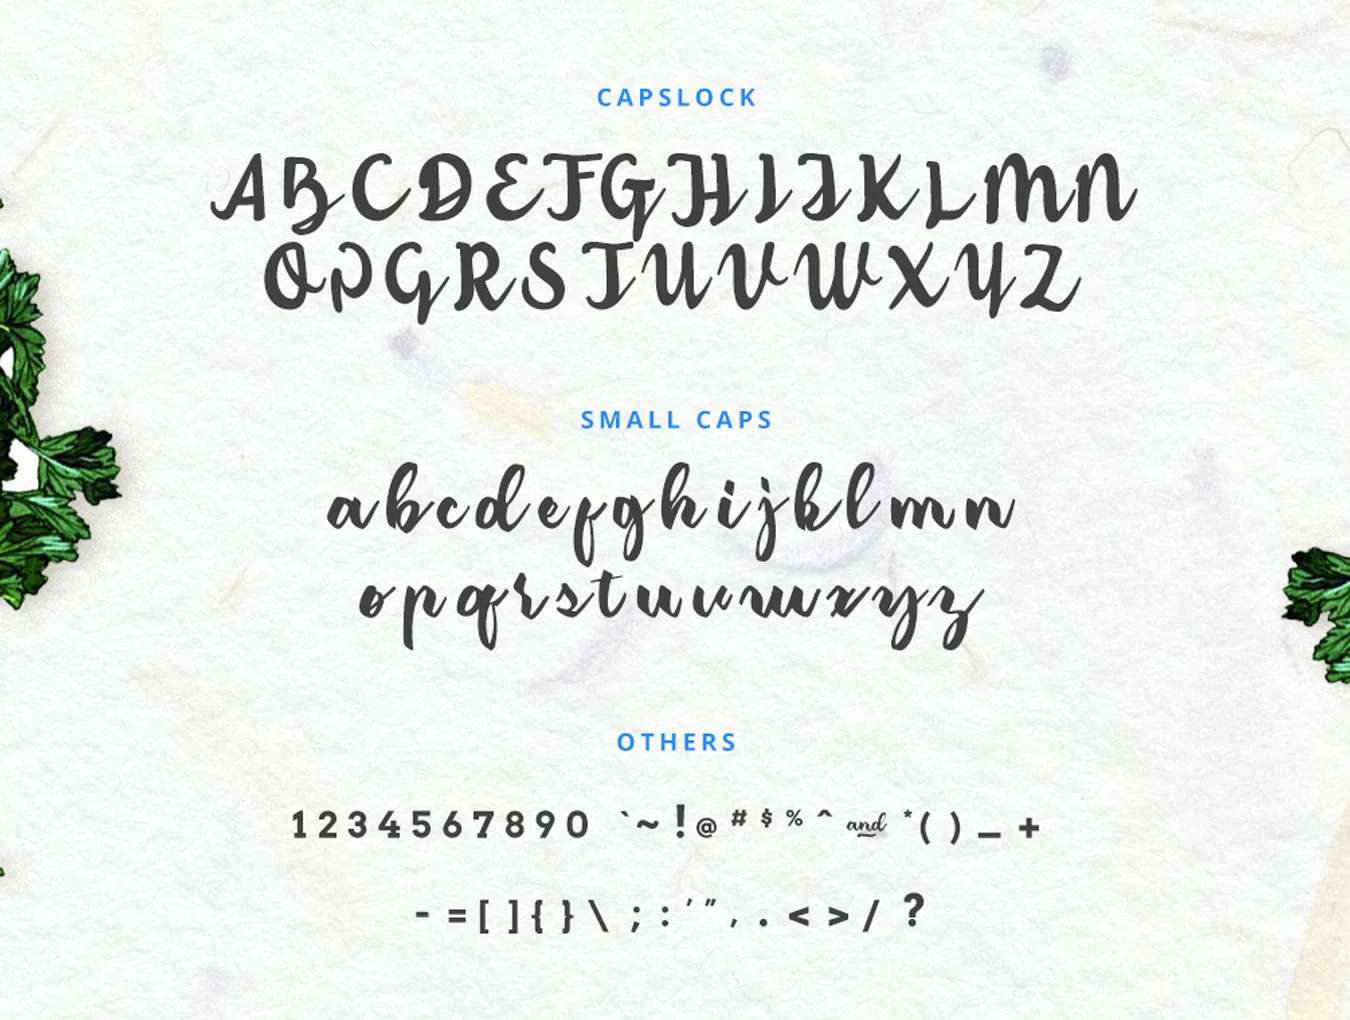 CAPSLOCK
ABCDEFGHIJKLMN
OPQRSTUVWXYZ
SMALL CAPS
abcdefghijklmn
opqrstuvwxyz
OTHERS
1234567890 `~!@#$%^and*()_+
-=[]{}\;:'",.<>/?